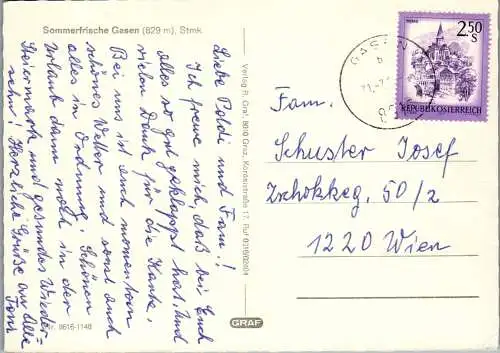 Sommerfrische Gasen (829 m), Stmk.
Liebe Poldi und Fam.!
Ich freue mich, daß bei Euch
alles so gut geklappt hat. Und
vielen Dank für die Karte.
Bei uns ist auch momentan
schönes Wetter und sonst auch
alles in Ordnung. Schönen
Urlaub dann noch in der
Steiermark und gesundes Wieder-
sehn! Herzliche Grüße an Alle
Toni
8616-1148
Verlag R. Graf, 8010 Graz, Korösistraße 17, Ruf
GRAF
GASEN
2.50
S
REPUBLIK ÖSTERREICH
Fam.
Schuster Josef
Zschokkeg. 50/2
1220 Wien